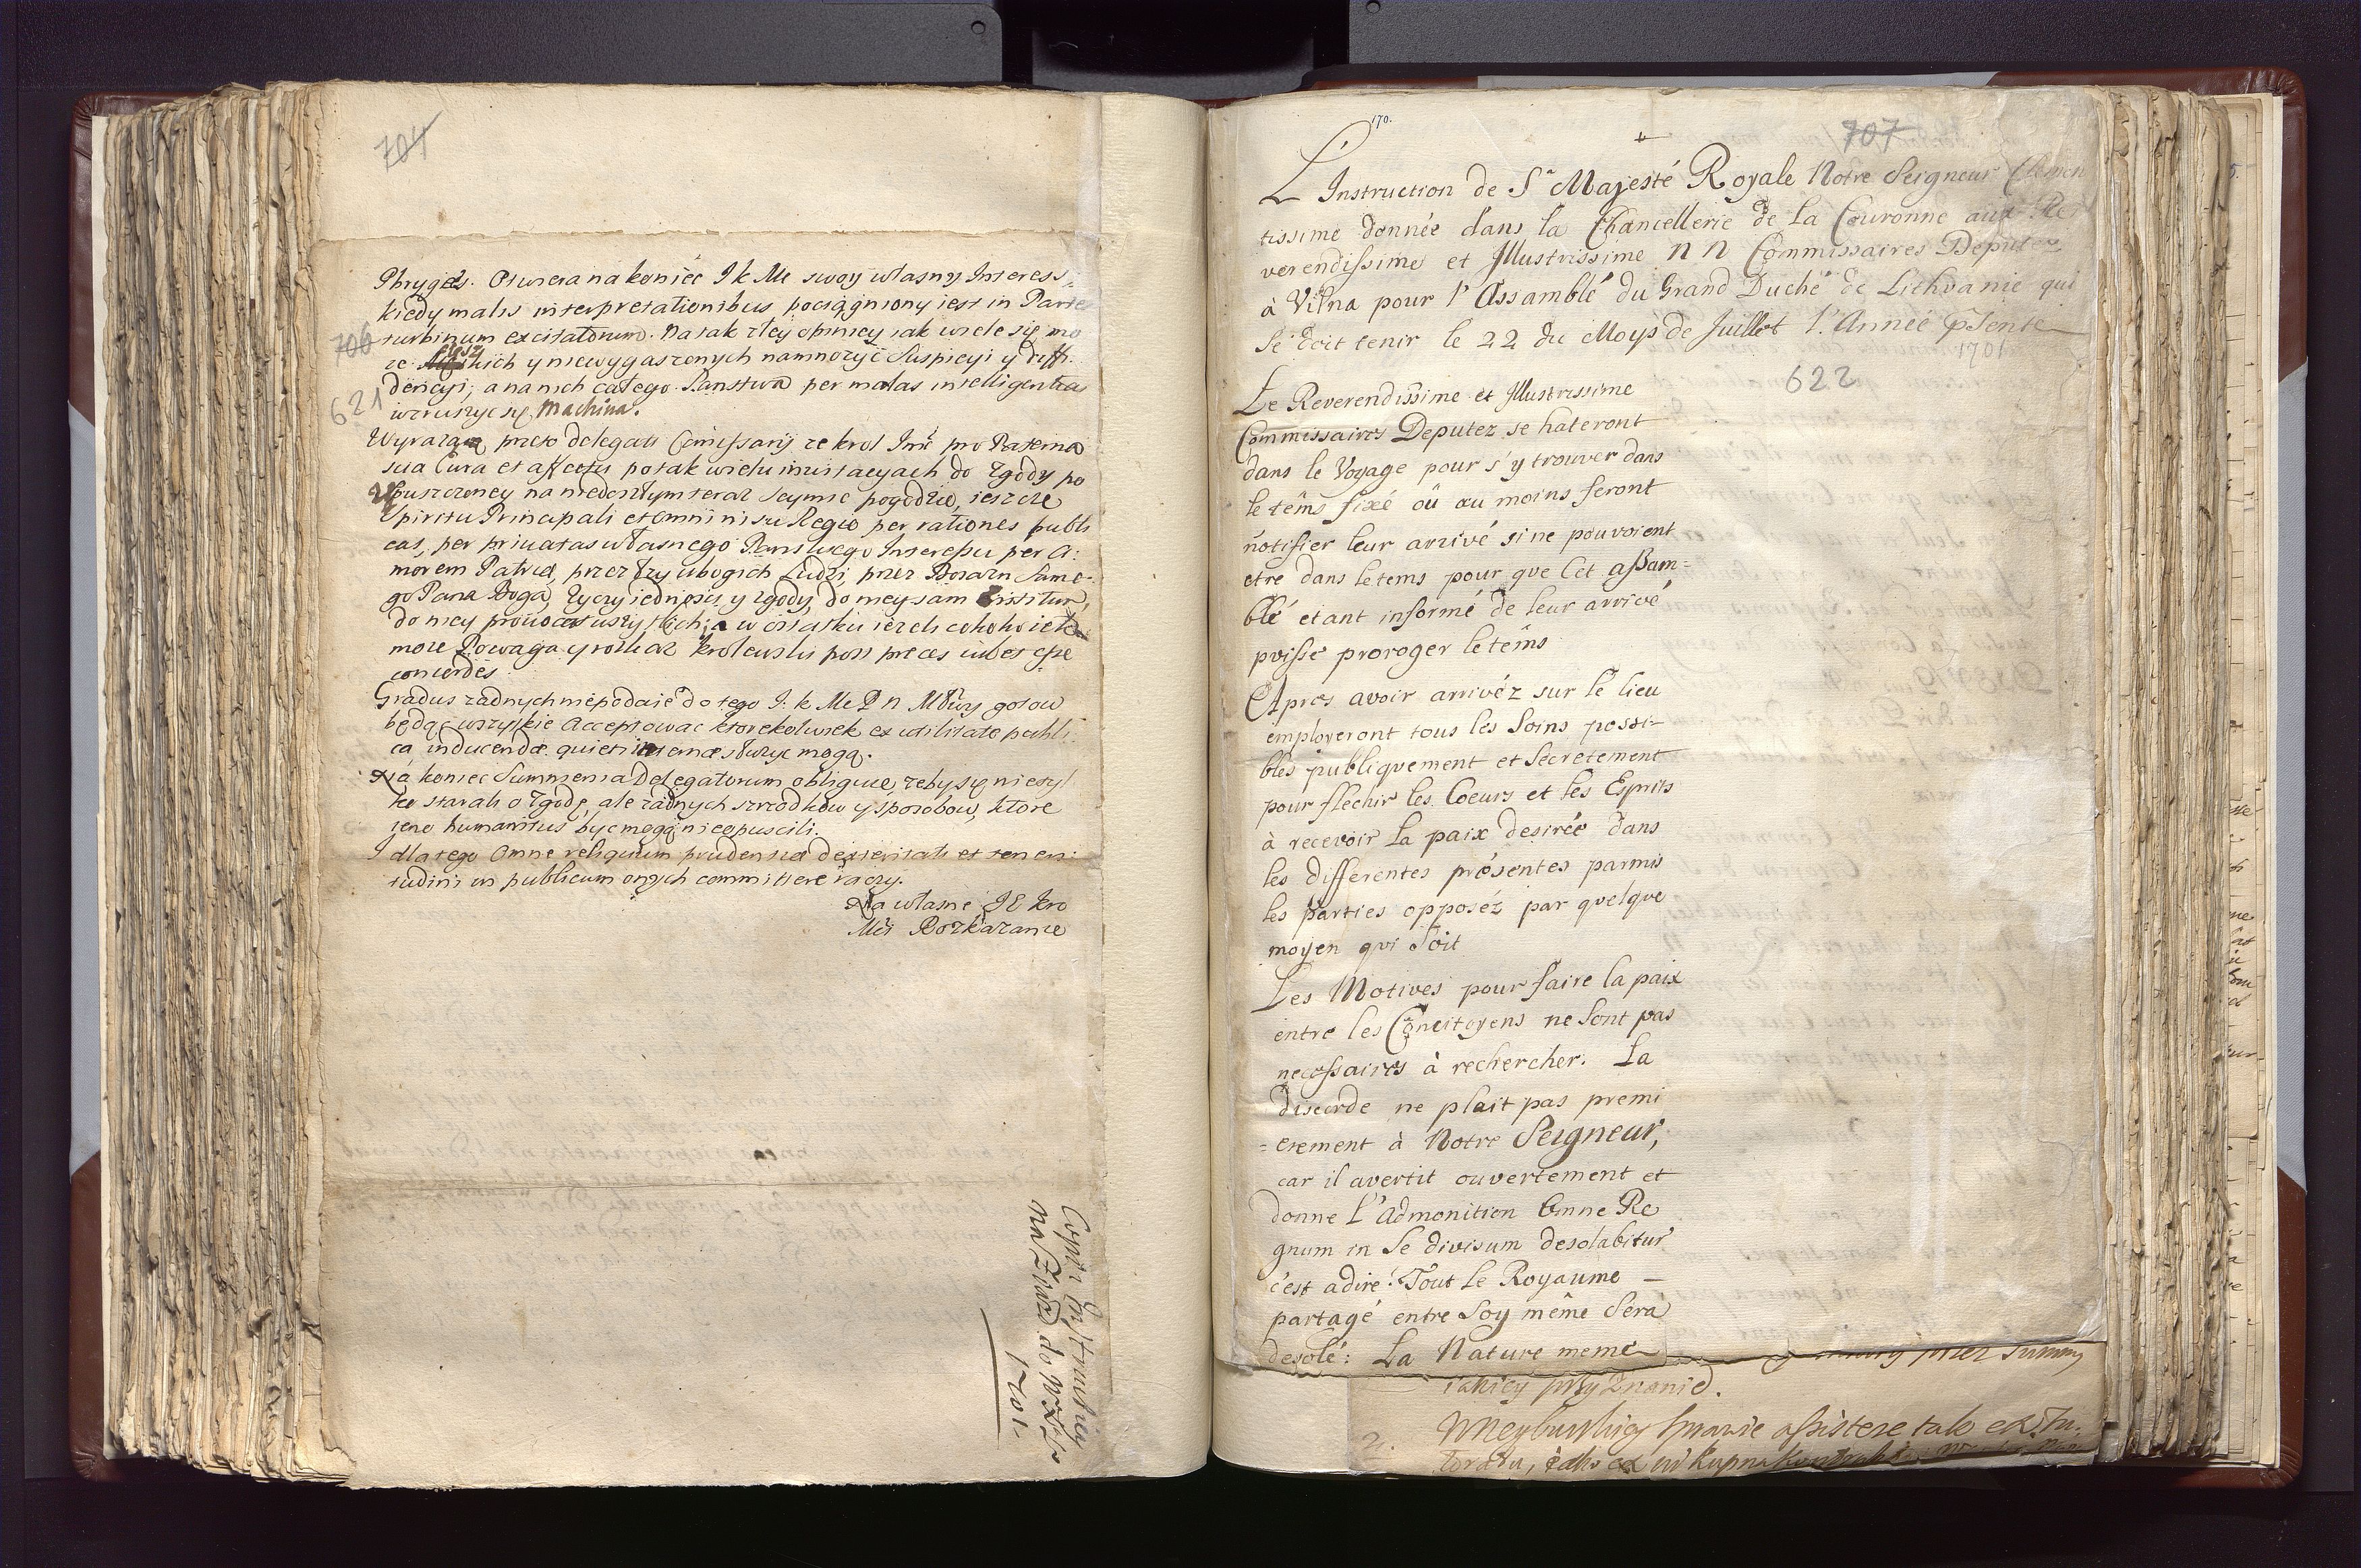 704
Phrygες. Otwiera na koniec J k Me swoy własny Interess,
kiedy malis interpretationibus pociągniony iest in Parte
706
turbinum excitatorum. Na tak złey opiniey iak wiele się mo
że kich y niewygaszonych namnożyć Suspicyi y diffi
621
dencyi, a na nich całego Panstwa per malas intelligentias
wzruszyc się Machina.
Wyrażą przeto delegati Comissarij ze krol Jmć pro Paterna
sua Cura et affectu po tak wielu invitacyach do Zgody po
puszczoney na niedoszłym teraz Seymie pogodzie, ieszcze
Spiritu Principali et omni nisu Regio per rationes publi
cas, per privatas własnego Panskiego Interessu per A:
morem Patriæ, przez łzy ubogich Ludzi, przez Boiazn Same-
go Pana Boga, życzy iednosci y zgody, do niey sam
do niey provocat wszystkich; a w ostatku ieżeli cokolwiek
może Powaga y rozkaz krolewski post preces iubet esse
concordes
Gradus żadnych niepodaie do tego J. k Me P n Młwy gotow
będąc wszystkie Acceptowac ktorekolwiek ex utilitate publi
ca inducendæ quieti internæ służyc mogą.
Na koniec Sumnienia Delegatorum obliguie, żeby się nie tyl
ko starali o Zgodę, ale żadnych szrzodkow y sposobow, ktore
ieno humanitus byc mogą nieopuscili.
I dla tego Omne reliquum prudentiæ dexteritati et
tudini in publicum onych committere raczy.
Na własne J E kro
Mći Rozkazanie
Copia Instructiey
na Ziazd do
1701.
170.
707
L'Instruction de Sa Majesté Royale Notre Seigneur Clemen
tissime donnée dans la Chancellerie de la Couronne aux Re
verendissime et Illustrissime n n Commissaires Deputez
à Vilna pour l'Assamblé du Grand Duché de Lithvanie qui
Se doit tenir le 22 du Moys de Juillet l'Année pSente
1701
622
Le Reverendissime et Illustrissime
Commissaires Deputez se hateront
dans le Voyage pour s'y trouver dans
le têms fixé où au moins feront
notifier leur arrivé si ne pouvoient
etre dans le tems pour que Cet assam=
blé etant informé de leur arrivé
puisse proroger le têms
Apres avoir arrivéz sur le lieu
emploveront tous les Soins possi-
bles publiquement et Secretement
pour flechir les Coeurs et les Esprits
à recevoir la paix desirée dans
les differentes présentes parmis
les parties opposéz par quelque
moyen qui Soit
Les Motives pour faire la paix
entre les Concitoyens ne Sont pas
necessaires à rechercher. La
discorde ne plait pas premi
=erement à Notre Seigneur,
car il avertit ouvertement et
donne l'Admonition Omne Re
gnum in Se divisum desolabitur
c'est a dire: Tout le Royaume –
partagé entre Soy même Sera
desolé: La Nature meme
przez Summy
iakiey przyznanie.
2. assistere tak ex In-